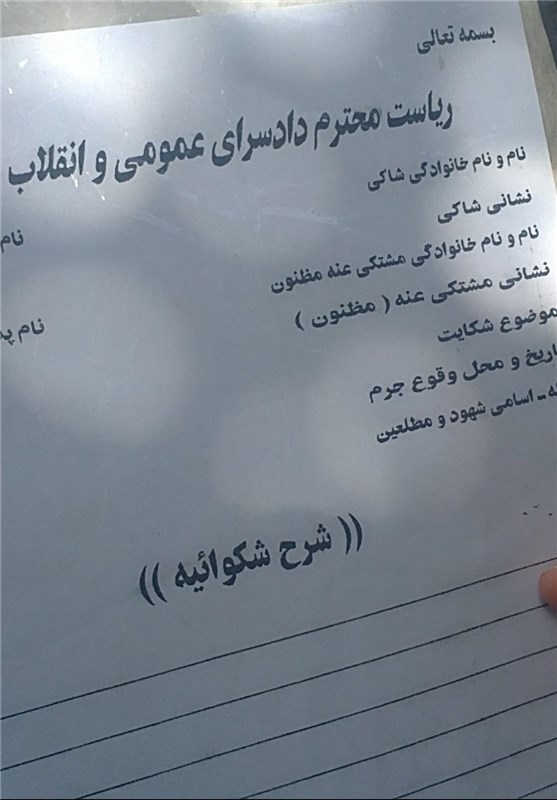 بسمه تعالی
ریاست محترم دادسرای عمومی و انقلاب
نام و نام خانوادگی شاکی
نام
نشانی شاکی
نام و نام خانوادگی مشتکی عنه مظنون
نام پد
نشانی مشتکی عنه ( مظنون )
موضوع شکایت
اریخ و محل وقوع جرم
ـ اسامی شهود و مطلعین
(( شرح شکوائیه ))